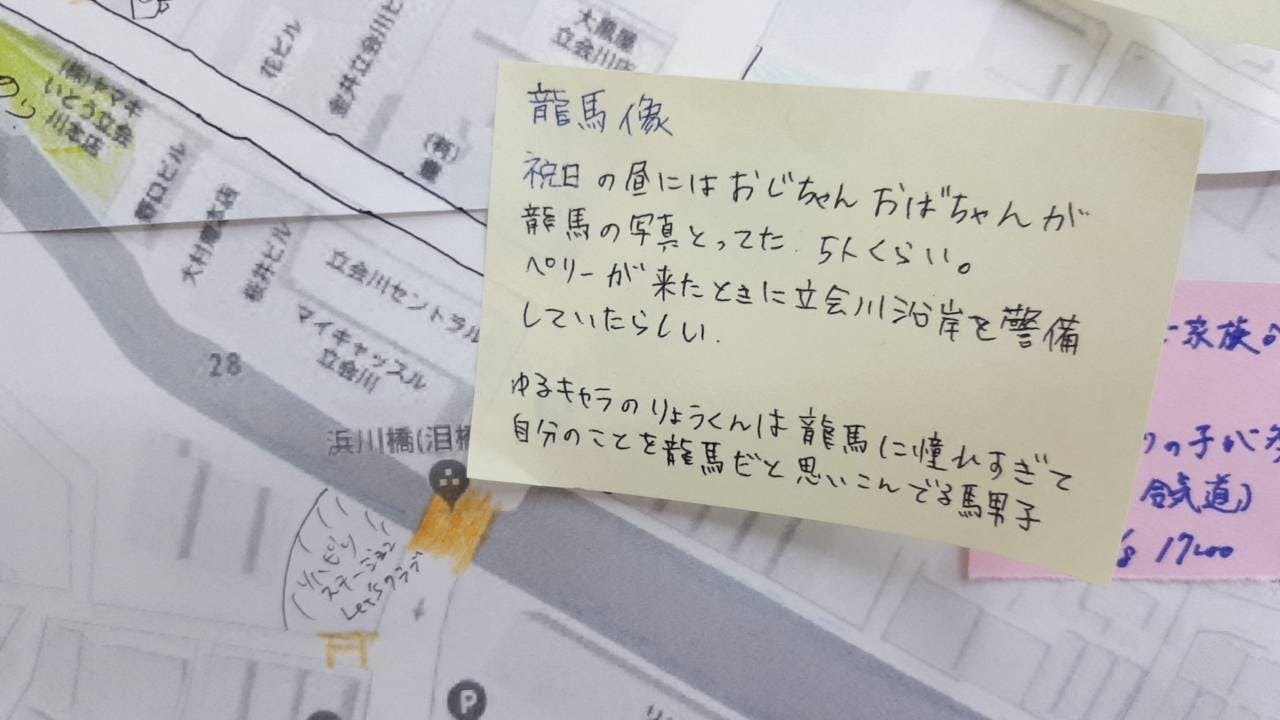 大黒屋
立会川店
花ビル
金井立会川ビ
(株)ヤマキ
いとう立会
川本店
(有)
野口ビル
大村庵本店
桜井ビル
立会川セントラル
マイキャッスル
立会川
28
浜川橋(泪橋
龍馬像
祝日の昼にはおじちゃんおばちゃんが
龍馬の写真とってた. 5人くらい。
ペリーが来たときに立会川沿岸を警備
していたらしい.
ゆるキャラのりょうくんは龍馬に憧れすぎて
自分のことを龍馬だと思いこんでる馬男子
家族
の子が
合気道)
17:00
リハビリ
ステーション
Let'sクラブ
P